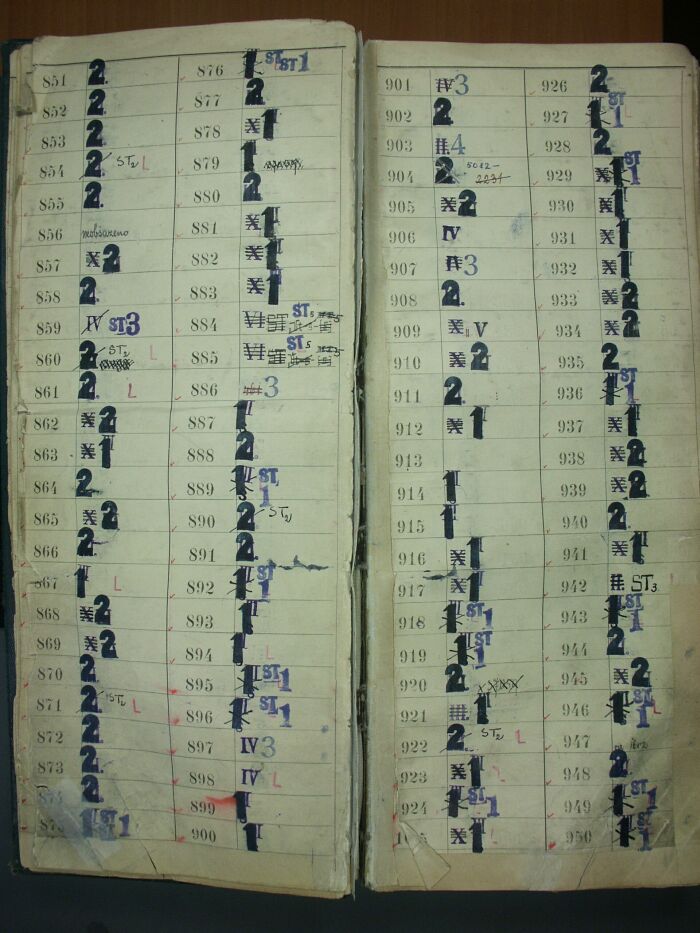 851 2.
852 2
853 2
854 2. ST2 L
855 2.
856
857 X 2
858 2.
859 IV ST3
860 2. ST2 L
861 2. L
862 X 2
863 X 1
864 2
865 X 2
866 2.
867 1 L
868 X 2
869 X 2
870 2.
871 2. ST2 L
872 2
873 2.
2.
1 ST 1
876 1 ST ST1
877 2
878 X 1
879 1
880 2
881 X 1
882 X 1
883 X 1
884 VI ST5
885 VI ST5
886 3
887 1
888 2.
889 1 ST 1
890 2 ST2
891 2.
892 1 ST 1
893 1
894 1 L
895 1 ST 1
896 1 ST 1
897 IV 3
898 IV L
899 1
900 1
901 IV 3
902 2
903 II. 4
904 2 5012- 2231
905 X 2
906 IV
907 3
908 2.
909 X V
910 X 2
911 2.
912 X 1
913
914 1
915 1
916 X 1
917 X 1
918 1 ST 1
919 1 ST 1
920 2
921 III. 1
922 2. ST2 L
923 X 1 L
924 1 ST 1
X 1
926 2
927 1 ST 1 L
928 2
929 X 1 ST 1
930 X 1
931 X 1
932 X 1
933 X 2
934 X 2
935 2
936 1 ST 1
937 X 1
938 X 2
939 X 2
940 2.
941 X 1
942 II. ST3.
943 1 ST 1
944 2.
945 X 2
946 1 ST 1 L
947
948 2.
949 1 ST 1
950 1 ST 1